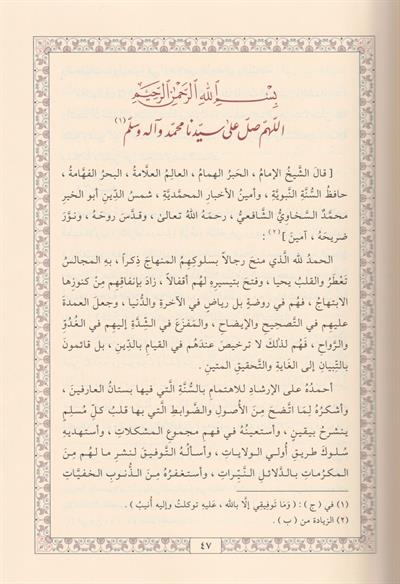 بِسْمِ اللهِ الرَّحْمٰنِ الرَّحِيمِ
اللّهمّ صلّ على سيّدنا محمّد وآله وسلّم (١)
[ قالَ الشَّيخُ الإمامُ، الحَبرُ الهمامُ، العالِمُ العلَّامةُ، البحرُ الفهَّامةُ،
حافظُ السُّنَّةِ النَّبويَّةِ، وأمينُ الأخبارِ المحمديَّةِ، شمسُ الدِّينِ أبو الخيرِ
محمَّدٌ السَّخاويُّ الشَّافعيُّ، رحمَهُ اللهُ تعالىٰ، وقدَّسَ روحَهُ، ونوَّرَ
ضريحَهُ، آمينَ ](٢) :
الحمدُ لله الَّذي منحَ رجالاً بسلوكِهِمُ المنهاجَ ذِكراً، بهِ المجالسُ
تَعْطَرُ والقلبُ يحيا، وفتحَ بتيسيرِهِ لهُم أقفالاً، زادَ بإنفاقِهِم مِنْ كنوزِها
الابتهاجُ، فهُم في روضةٍ بل رياضٍ في الآخرةِ والدُّنيا، وجعلَ العمدةَ
عليهِم في التَّصحيحِ والإيضاحِ، والمَفزَعَ في الشِّدةِ إليهِم في الغُدُوِّ
والرَّواحِ، فهُم لذٰلكَ لا ترخيصَ عندَهُم في القيامِ بالدِّينِ، بل قائمونَ
بالتِّبيانِ إلى الغايةِ والتَّحقيقِ المتينِ .
أحمدُهُ على الإرشادِ للاهتمامِ بالسُّنَّةِ الَّتي فيها بستانُ العارفينَ،
وأشكرُهُ لِمَا اتَّضحَ مِنَ الأُصولِ والضَّوابطِ الَّتي بها قلبُ كلِّ مُسلِمٍ
ينشرحُ بيقينٍ، وأستعينُهُ في فهمِ مجموعِ المشكلاتِ، وأستهديهِ
سُلوكَ طريقِ أُولي الولاياتِ، وأسألُهُ التَّوفيقَ لنشرِ ما لهُم مِنَ
المكرماتِ بالدَّلائلِ النَّيِّراتِ، وأستغفرُهُ مِنَ الذُّنوبِ الخفيَّاتِ
(١) في ( ج ) : ( وَمَا تَوفِيقِي إلَّا بالله، عَليهِ توكلتُ وإليهِ أُنيبُ ) .
(٢) الزيادة من ( ب ) .
٤٧